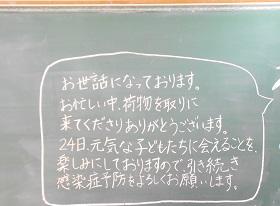 お世話になっております。
お忙しい中、荷物を取りに
来てくださりありがとうございます。
24日、元気な子どもたちに会えることを、
楽しみにしておりますので、引き続き
感染症予防をよろしくお願いします。